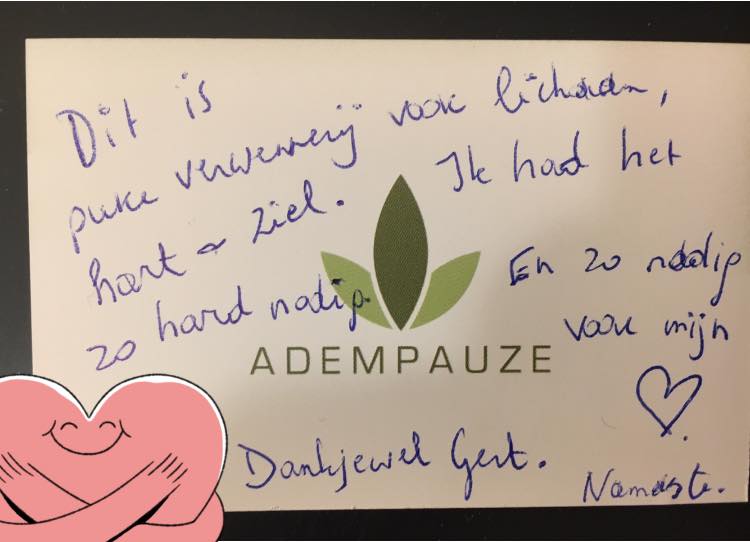 Dit is
pure verwennerij voor lichaam,
hart ~ ziel. Ik had het
zo hard nodig. En zo nodig
voor mijn
♡.
ADEMPAUZE
Dankjewel Gert.
Namaste.